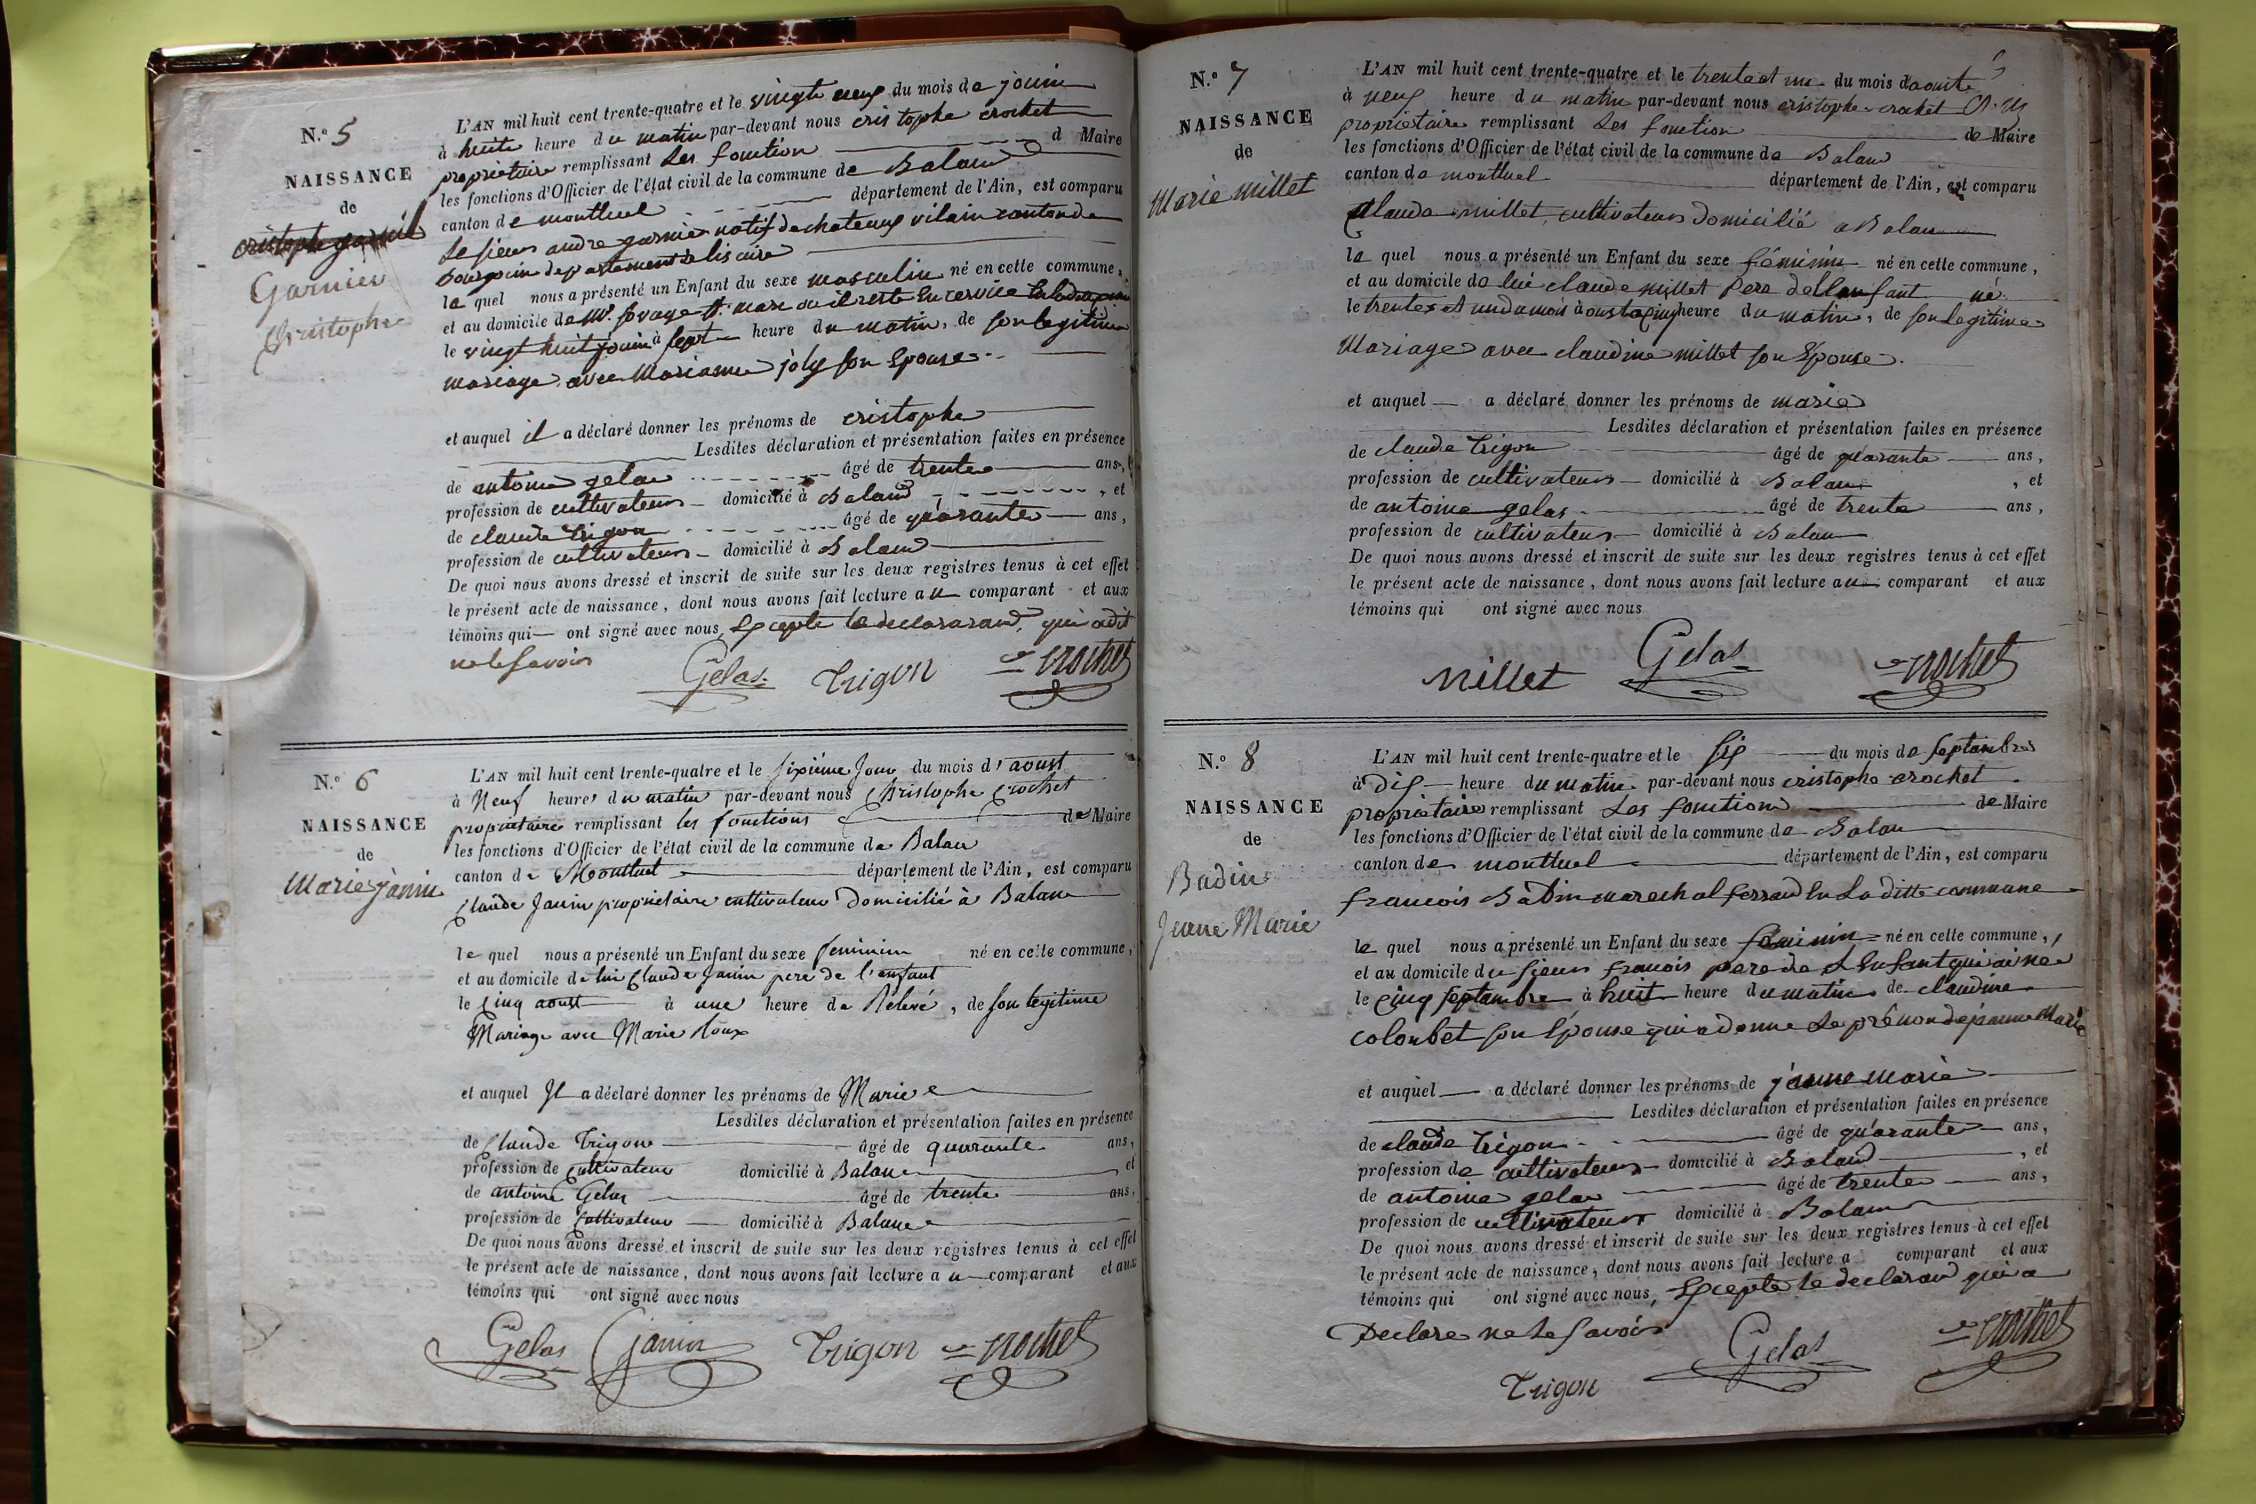 N.º 5
NAISSANCE
de
cristophe garnié
Garnier
Christophe
L'AN mil huit cent trente-quatre et le vingte neuf du mois de jouin
à huite heure du matin par-devant nous cristophe crochet
propriétaire remplissant Les fonction d Maire
les fonctions d'Officier de l'état civil de la commune de Baland
canton de montluel département de l'Ain, est comparu
Le sieur andre garnié natif de chateauf vilain canton de
Bourgoin departement de lisaire
le quel nous a présenté un Enfant du sexe masculin né en cette commune,
et au domicile de Mr. sovage St. marc ou il reste en cervice
le vingt huit jouin à sept heure du matin, de son legitime
mariage avec Marianne joly son Epouse
et auquel il a déclaré donner les prénoms de cristophe
Lesdites déclaration et présentation faites en présence
de antoine gelas âgé de trente ans,
profession de cultivateur domicilié à Baland , et
de claude trigon âgé de quarante ans,
profession de cultivateur domicilié à Baland
De quoi nous avons dressé et inscrit de suite sur les deux registres tenus à cet effet
le présent acte de naissance, dont nous avons fait lecture au comparant et aux
témoins qui ont signé avec nous, Excepte le declararand, qui a dit
ne le savoir
Gelas Trigon crochet
N.º 6
NAISSANCE
de
Marie janin
L'AN mil huit cent trente-quatre et le sixième Jour du mois d'aoust
à Neuf heures du matin par-devant nous Christophe Crochet
propriétaire remplissant les fonctions de Maire
les fonctions d'Officier de l'état civil de la commune de Balan
canton de Montluel département de l'Ain, est comparu
Claude Janin propriétaire cultivateur Domicilié à Balan
le quel nous a présenté un Enfant du sexe feminin né en cette commune,
et au domicile de lui Claude Janin pere de l'enfant
le cinq aoust à une heure de Relevé, de son legitime
Mariage avec Marie Roux
et auquel Il a déclaré donner les prénoms de Marie
Lesdites déclaration et présentation faites en présence
de Claude Trigon âgé de quarante ans,
profession de Cultivateur domicilié à Balan et
de antoine Gelas âgé de trente ans,
profession de Cultivateur domicilié à Balan
De quoi nous avons dressé et inscrit de suite sur les deux registres tenus à cet effet
le présent acte de naissance, dont nous avons fait lecture au comparant et aux
témoins qui ont signé avec nous
Gelas Janin Trigon crochet
N.º 7
NAISSANCE
de
Marie millet
L'AN mil huit cent trente-quatre et le trente et un du mois daouste
à neuf heure du matin par-devant nous cristophe crochet
propriétaire remplissant Les fonction de Maire
les fonctions d'Officier de l'état civil de la commune de Baland
canton de montluel département de l'Ain, est comparu
Claude millet, cultivateur domicilié a Balan
le quel nous a présenté un Enfant du sexe féminin né en cette commune,
et au domicile de lui claude millet Pere de Lanfant né
le trente et un du mois doouste a cinq heure du matin, de son Legitime
Mariage avec claudine millet son Epouse.
et auquel a déclaré donner les prénoms de marie
Lesdites déclaration et présentation faites en présence
de claude trigon âgé de quarante ans,
profession de cultivateur domicilié à Balan , et
de antoine gelas âgé de trente ans,
profession de cultivateur domicilié à Balan
De quoi nous avons dressé et inscrit de suite sur les deux registres tenus à cet effet
le présent acte de naissance, dont nous avons fait lecture au comparant et aux
témoins qui ont signé avec nous
Millet Gelas crochet
N.º 8
NAISSANCE
de
Badin
Jeane Marie
L'AN mil huit cent trente-quatre et le six du mois de septambre
à dix heure du matin par-devant nous cristophe crochet
propriétaire remplissant Les fonction de Maire
les fonctions d'Officier de l'état civil de la commune de Balan
canton de montluel département de l'Ain, est comparu
francois Badin marechal ferrand En La ditte commune
le quel nous a présenté un Enfant du sexe féminin né en cette commune,
et au domicile du sieur francois pere de L Enfant qui ai nee
le cinq septambre à huit heure du matin de claudine
colonbet son Epouse qui a donne Le prénon de jeanne Marie
et auquel a déclaré donner les prénoms de jeanne marie
Lesdites déclaration et présentation faites en présence
de claude trigon âgé de quarante ans,
profession de cultivateur domicilié à Baland , et
de antoine gelas âgé de trente ans,
profession de cultivateur domicilié à Balan
De quoi nous avons dressé et inscrit de suite sur les deux registres tenus à cet effet
le présent acte de naissance, dont nous avons fait lecture a comparant et aux
témoins qui ont signé avec nous, Excepte le declarand qui a
Declare ne Le savoir
Trigon Gelas crochet